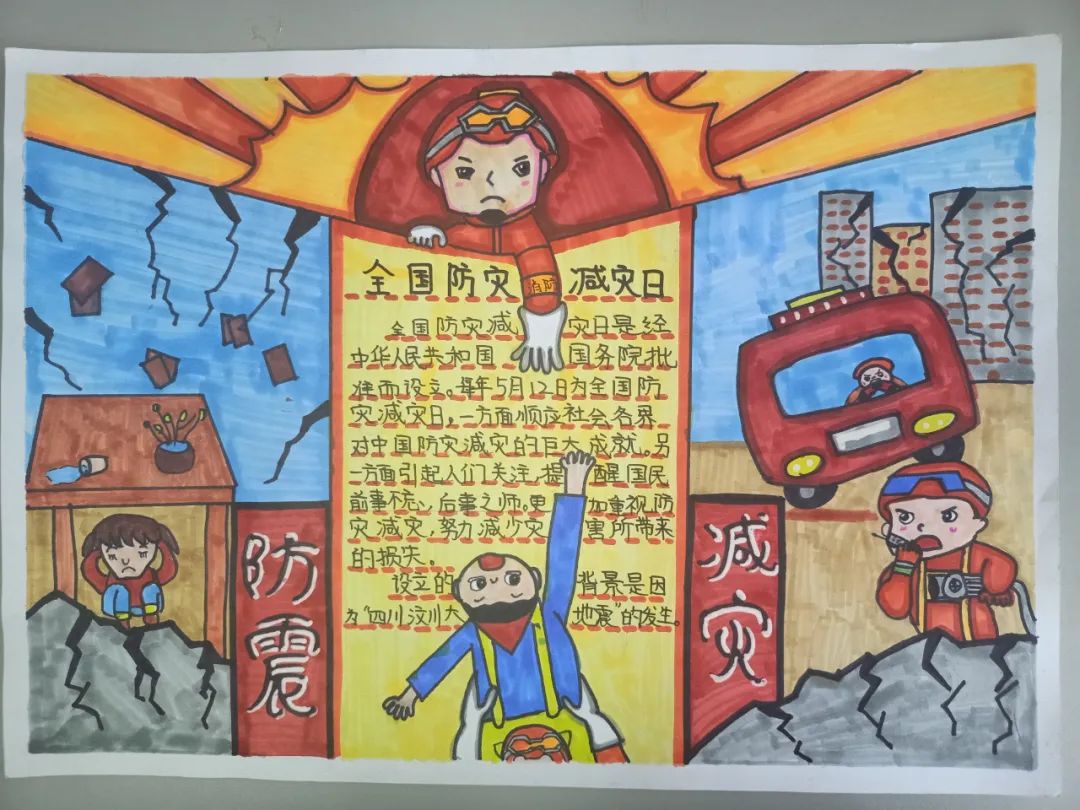 全国防灾减灾日
消防
全国防灾减灾日是经
中华人民共和国国务院批
准而设立。每年5月12日为全国防
灾减灾日，一方面顺应社会各界
对中国防灾减灾的巨大成就。另
一方面引起人们关注，提醒国民
前事不忘、后事之师。更加重视防
灾减灾，努力减少灾害所带来
的损失。
设立的背景是因
为“四川汶川大地震”的发生。
防震
减灾